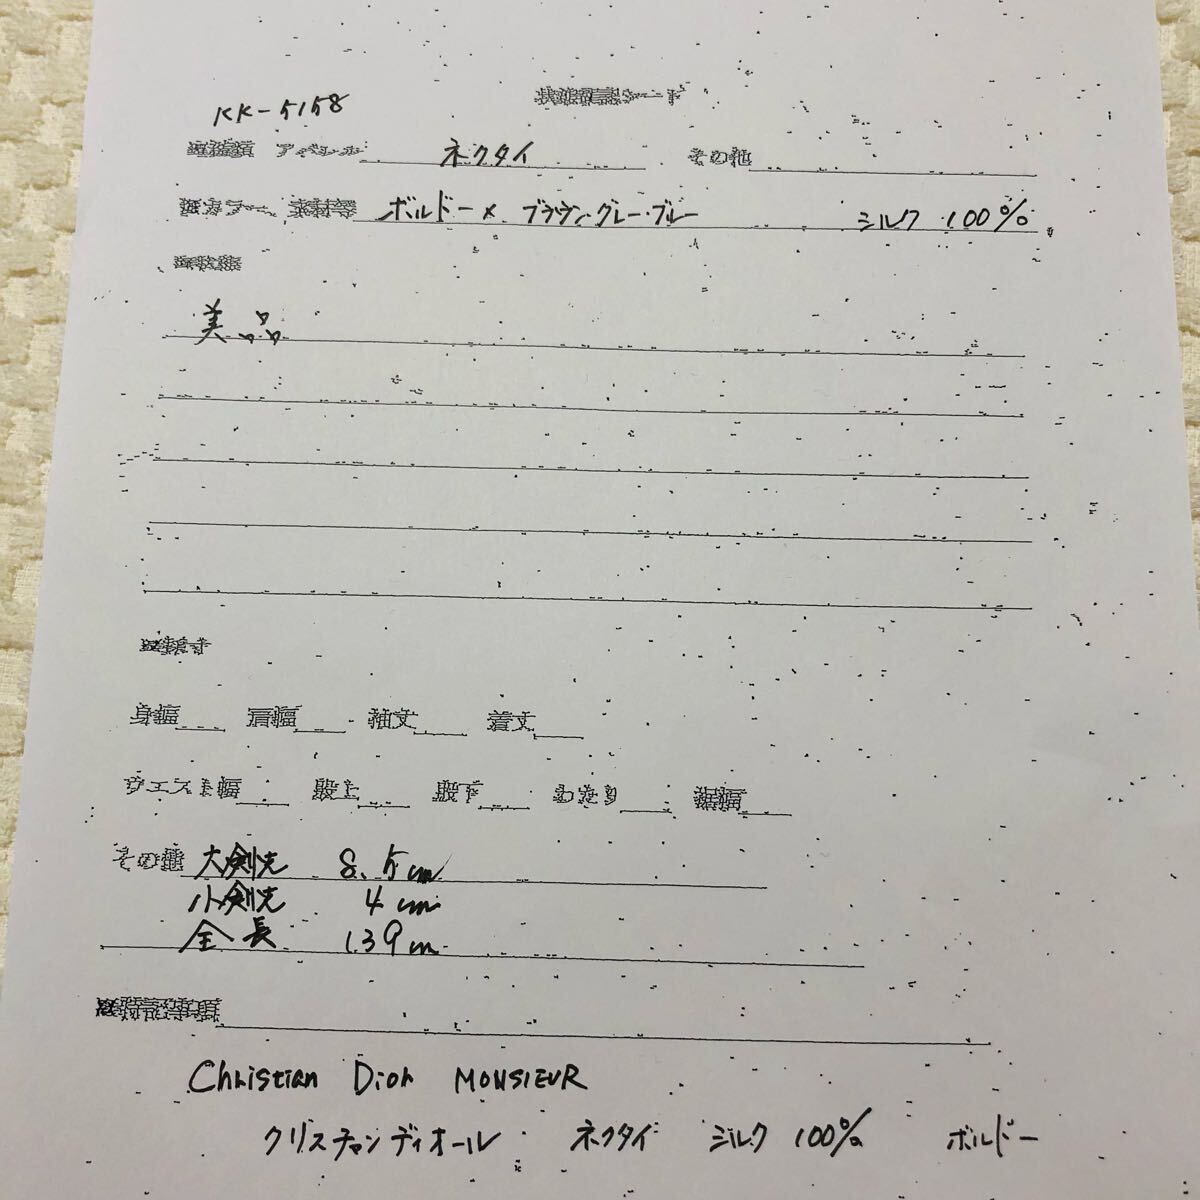 KK-5158
状態確認シート
アパレル ネクタイ その他
カラー、素材等 ボルドー×ブラウン・グレー・ブルー シルク 100%
状態
美品
身幅 肩幅 袖丈 着丈
ウエスト幅 股上 股下 わたり 裾幅
その他 大剣先 8.5cm
小剣先 4cm
全長 139cm
特記事項
Christian Dior MONSIEUR
クリスチャンディオール ネクタイ シルク 100% ボルドー